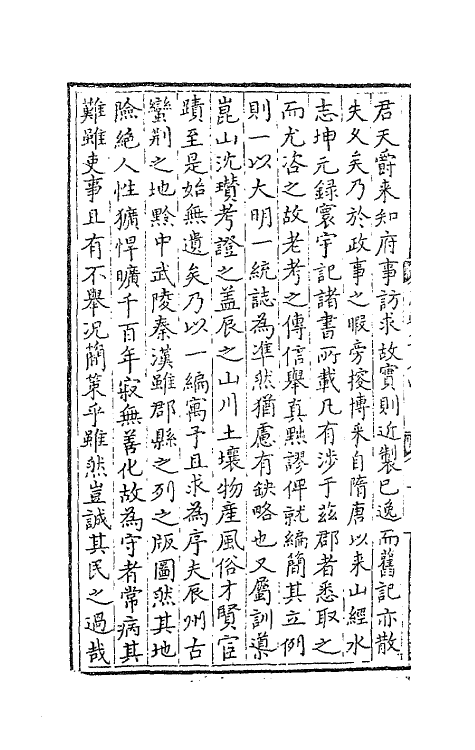 君天爵来知府事訪求故實則近製已逸而舊記亦散
失久矣乃於政事之暇旁搜博采自隋唐以来山經水
志坤元錄寰宇記諸書所載凡有涉于兹郡者悉取之
而尤咨之故老考之傳信舉真黜謬俾就編簡其立例
則一以大明一統誌為準然猶慮有缺略也又屬訓導
崑山沈瓚考證之盖辰之山川土壤物産風俗才賢宦
蹟至是始無遺矣乃以一編寓予且求為序夫辰州古
蠻荆之地黔中武陵秦漢雖郡縣之列之版圖然其地
險絕人性獷悍曠千百年寂無善化故為守者常病其
難雖吏事且有不舉况簡策乎雖然豈誠其民之過哉